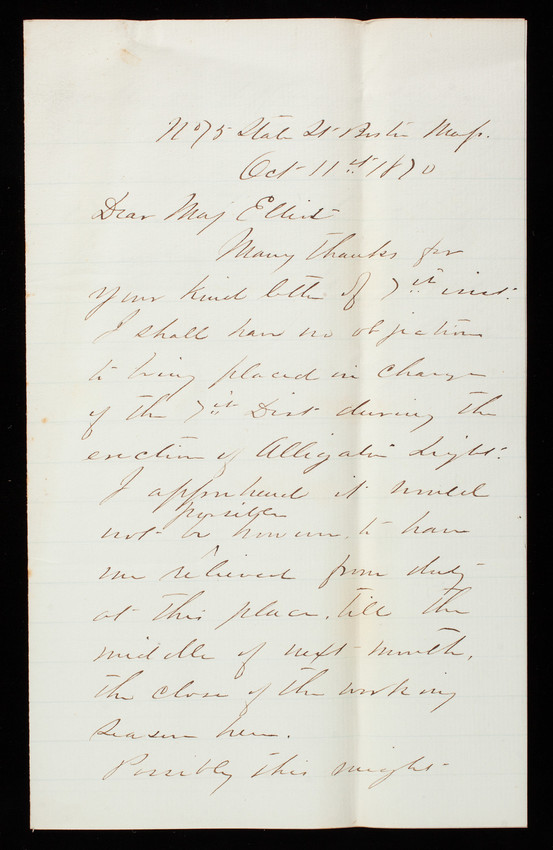 No 75 State St Boston Mass.
Oct 11th 1870
Dear Maj Elliot
Many thanks for
your kind letter of 7th inst.
I shall have no objections
to being placed in charge
of the 7th Dist during the
erection of Alligator Light.
I apprehend it would
possible
not be however, to have
me relieved from duty
at this place, till the
middle of next month,
the close of the working
season here.
Possibly this might